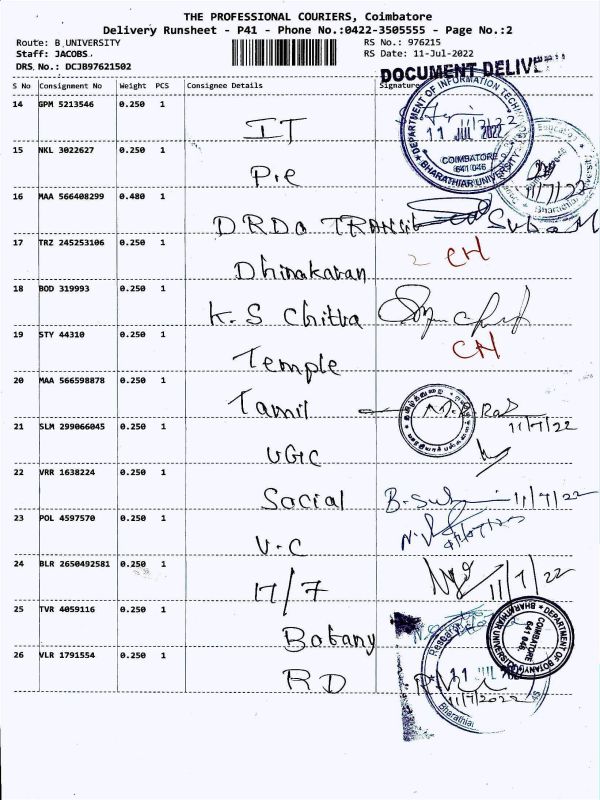 THE PROFESSIONAL COURIERS, Coimbatore
Delivery Runsheet - P41 - Phone No.:0422-3505555 - Page No.:2
Route: B UNIVERSITY RS No.: 976215
Staff: JACOBS RS Date: 11-Jul-2022
DRS No.: DCJB97621502
DOCUMENT DELIVE
S No Consignment No Weight PCS Consignee Details Signature
14 GPM 5213546 0.250 1 IT
DEPARTMENT OF INFORMATION TECHNOLOGY
11 JUL 2022
COIMBATORE
641 046
BHARATHIAR UNIVERSITY
15 NKL 3022627 0.250 1 P.e
11/7/22
16 MAA 566408299 0.480 1 DRDO TRANSit Suba M
17 TRZ 245253106 0.250 1 Dhinakaran CH
18 BOD 319993 0.250 1 K.S Chitra
19 STY 44310 0.250 1 Temple CH
20 MAA 566598878 0.250 1 Tamil
11/7/22
21 SLM 299066045 0.250 1 UGC
22 VRR 1638224 0.250 1 Social 11/7/22
23 POL 4597570 0.250 1 V.C
24 BLR 2650492581 0.250 1 17/7 11/7/22
25 TVR 4059116 0.250 1 Botany
DEPARTMENT OF BOTANY
COIMBATORE
641 046
BHARATHIAR UNIVERSITY
26 VLR 1791554 0.250 1 RD
11 JUL
11/7/2022